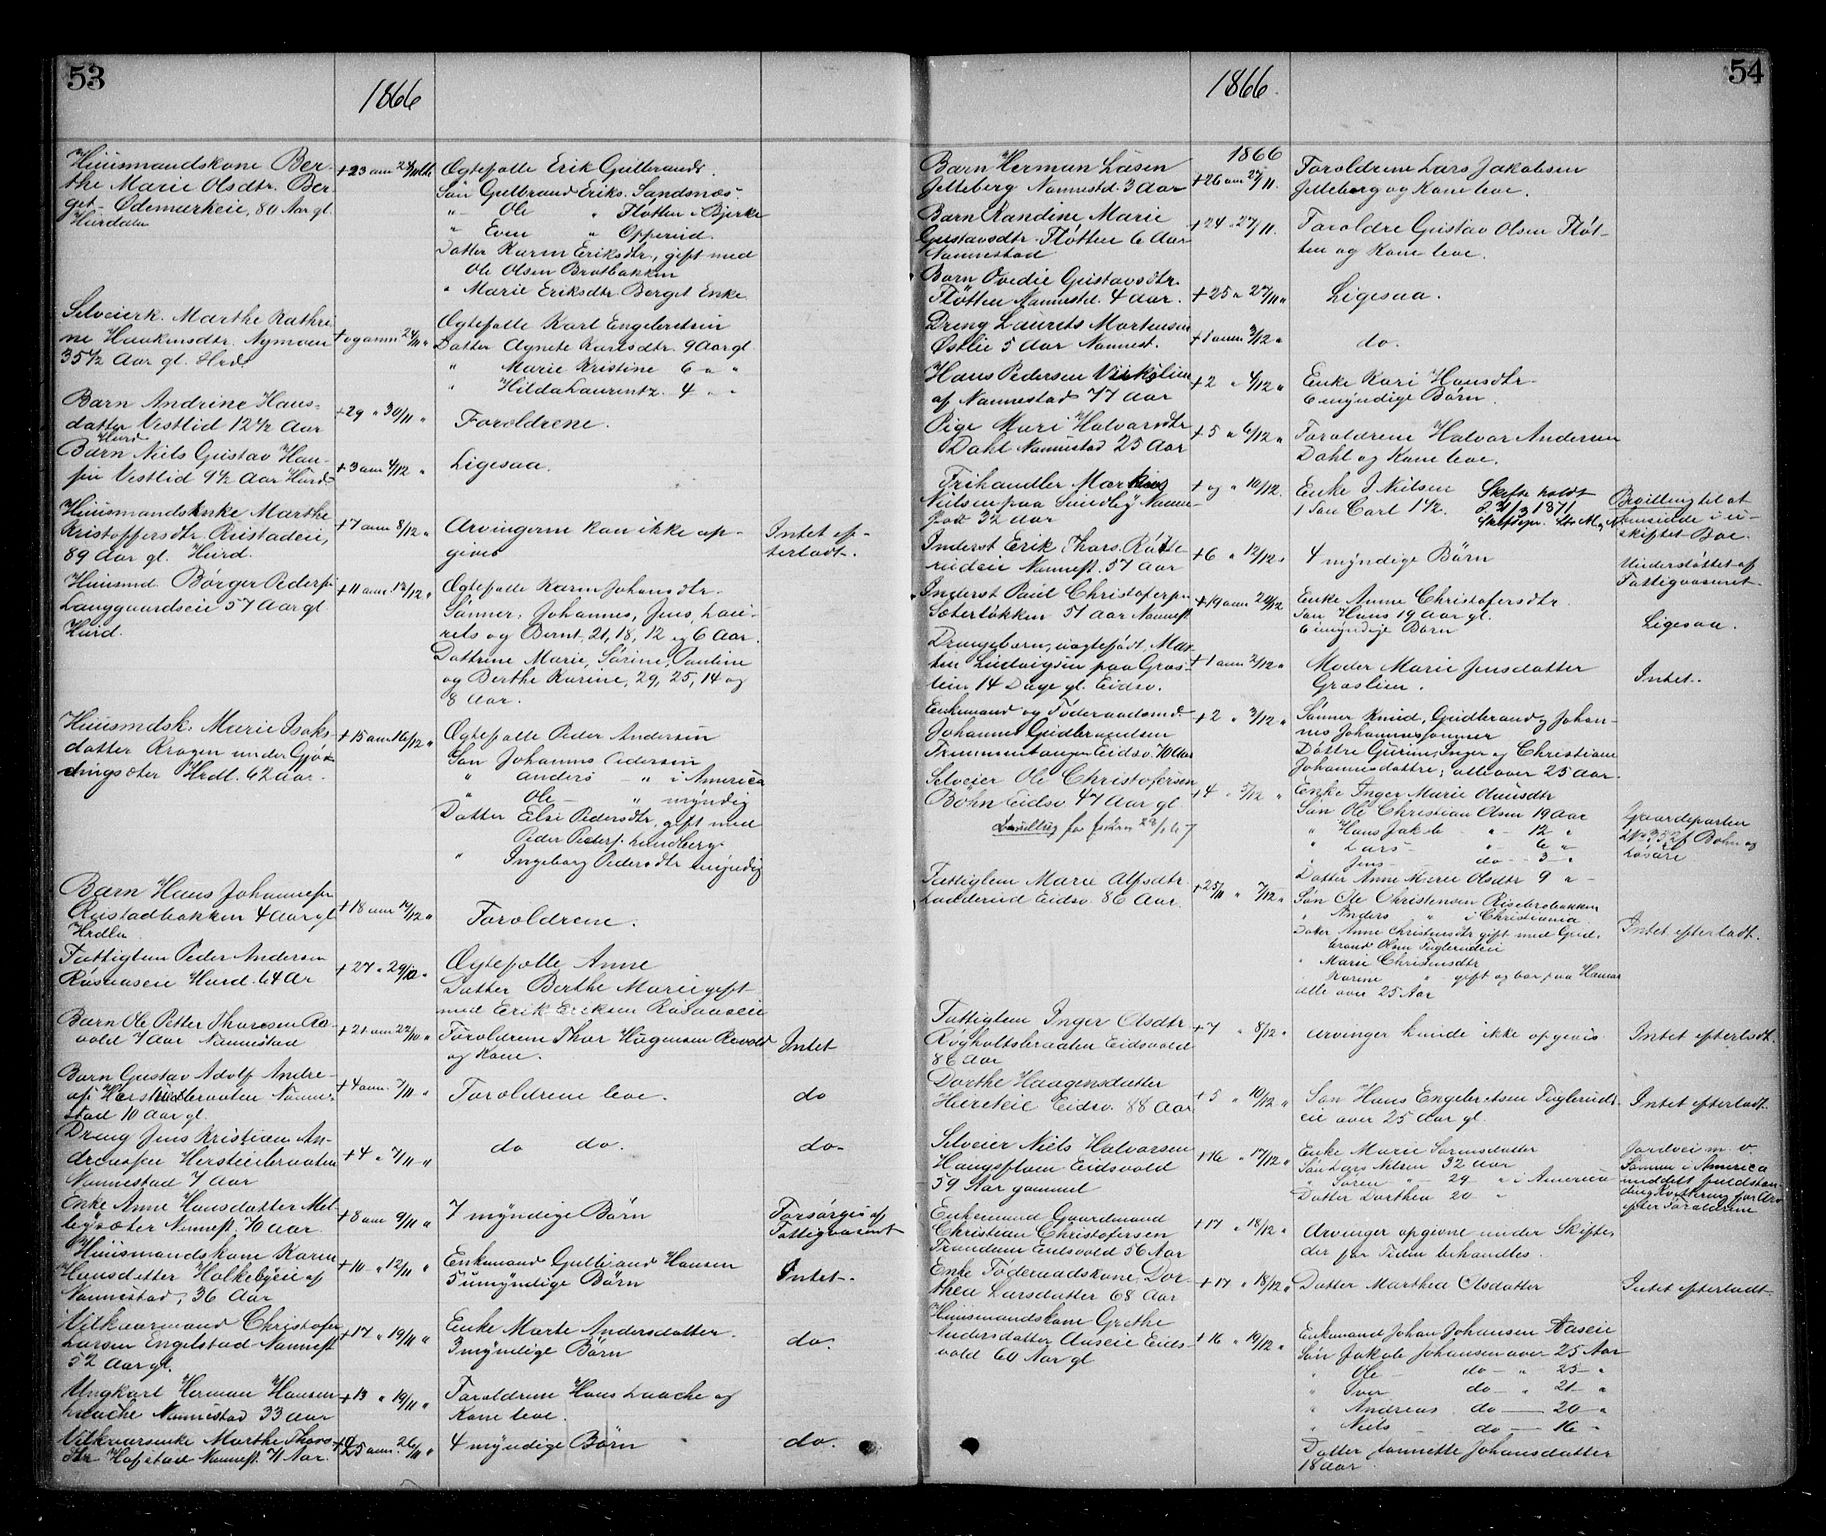 53
1866
Huusmandskone Ber-
the Marie Olsdtr. Ber
get - Ødemarkeie, 80 Aar gl.
Hurdalen
+23 anm 24/10
Ægtefælle Erik Gulbrands.
Søn Gulbrand Eriks. Sandsnæs
"- Ole " Fløtten i Bjerke
" Even " Opperud.
Datter Karen Eriksdtr, gift med
Ole Olsen Brotbakken
" Marie Eriksdtr Berget Enke
Selveierk. Marthe Kathri
ne Haakensdtr. Nymoen
35½ Aar gl. Hrd
+ og anm 24/11 "
Ægtefælle Karl Engebretsen
Datter Agnete Karlsdtr. 9 Aar gl.
" Marie Kristine 6 " "
" Hilda Laurentz. 4 " "
Barn Andrine Hans-
datter Vestlid 12½ Aar
Hurd
+29 " 30/11 "
Forældrene.
Barn Niels Gustav Han-
sen Vestlid 9½ Aar Hurd
+3 anm 4/12 "
Ligesaa.
Huusmandsenke Marthe
Kristoffersdtr. Rustadeie,
89 Aar gl. Hurd.
+7 anm 8/12 "
Arvingerne kan ikke op-
gives
Intet ef-
terladt.
Huusmd. Børger Peders.
Langgaardseie 57 Aar gl
Hurd.
+11 anm. 12/12 "
Ægtefælle Karen Johansdtr.
Sønner, Johannes, Jens, Lau-
rits og Bernt, 21, 18, 12 og 6 Aar.
Døttrene Marie, Sørine, Pauline
og Berthe Karine, 29, 25, 14 og
8 Aar.
Huusmdsk. Marie Isaks-
datter Kragen under Gjø-
dingsæter Hrdl. 62 Aar.
+15 anm 16/12 "
Ægtefælle Peder Andersen
Søn Johannes Pedersen
" Anders - " i America
" Ole - " myndig
Datter Else Pedersdtr, gift med
Peder Peders. Lundberg.
" Ingeborg Pedersdtr umyndig
Barn Hans Johannesen
Rustadbakken 4 Aar gl
Hrdln
+18 anm 19/12 "
Forældrene.
Fattiglem Peder Andersen
Røsaaseie Hurd. 64 Ar
+27 " 29/12 "
Ægtefælle Anne
Datter Berthe Marie gift
med Erik Eriksen Røsaaseie
Barn Ole Petter Thoresen Aa-
vold 7 Aar Nannestad
+21 anm 22/10 "
Forældrene Thor Haagensen Aavold
og Kone.
Intet
Barn Gustav Adolf Andre-
as. Herstuebraaten Nanne-
stad 10 Aar gl.
+4 anm. 7/11 "
Forældrene leve.
do
Dreng Jens Kristian An-
dreasen Herstuebraaten
Nannestad 7 Aar
+4 " 7/11 "
do do.
do-
Enke Anne Hansdatter Mel-
bysæter Nannest. 70 Aar.
+8 anm 9/11 "
7 myndige Børn
Forsørges af
Fattigvæsnet
Huusmandskone Karen
Hansdatter Holkebyeie af
Nannestad, 36 Aar
+10 " 12/11 "
Enkemand Gulbrand Hansen
5 umyndige Børn
Intet.
Vilkaarmand Christofer
Larsen Engelstad Nannest
52 Aar gl.
+17 " 19/11 "
Enke Marte Andersdatter.
3 myndige Børn
do.
Ungkarl Herman Hansen
Laache Nannestad 33 Aar
+13 " 19/11 "
Forældrene Hans Laache og
Kone leve.
Vilkaarsenke Marthe Thors-
dtr Hofstad Nannest. 71 Aar.
+25 anm. 26/11 "
4 myndige Børn
do.
54
1866.
Barn Herman Larsen
Jelleberg Nannestd. 3 Aar
1866
+26 anm 27/11.
Forældrene Lars Jakobsen
Jelleberg og Kone leve.
Barn Randine Marie
Gustavsdtr. Fløtten 6 Aar
Nannestad
+24 " 27/11.
Forældre Gustav Olsen Fløt-
ten og Kone leve.
Barn Ovedie Gustavsdtr.
Fløtten Nannestd. 4 Aar.
+25 " 27/11 "
Ligesaa.
Dreng Laurets Mortensen
Østlie 5 Aar Nannest.
+1 anm 3/12 "
do.
Hans Pedersen Viksliem
af Nannestad 77 Aar
+2 " 4/12 "
Enke Kari Hansdtr-
6 myndige Børn.
Pige Mari Halvorsdtr
Dahl Nannestad 25 Aar
+5 " 6/12 "
Forældrene Halvor Andersen
Dahl og Kone leve.
Frihandler Markus
Nilsen paa Lundby Nanne-
stad 32 Aar
+ og " 10/12.
Enke J Nielsen
1 Søn Carl 1½.
Skifte holdt
d. 21/3 1871
Bevilling til at
hensidde i u-
skiftet Boe.
Inderst Erik Thors. Røtte-
rudeie Nannest. 57 Aar
+6 " 12/12 "
4 myndige Børn
Understøttet af
Fattigvæsnet
Inderst Paul Christofers.
Sæterløkken 51 Aar Nannest
+19 anm 20/12
Enke Anne Christofersdtr.
Søn Hans 19 Aar gl.
6 myndige Børn
Ligesaa.
Drengebarn, uægtefødt, Mar-
tin Ludvigsen paa Gras-
lien 14 Dage gl. Eidsv.
+1 anm 3/12 "
Moder Marie Jensdatter
Graslien.
Intet.
Enkemand og Føderaadsmd.
Johannes Guldbrandsen
Trommerhaugen Eidsv. 70 Aar
+2 " 3/12 "
Sønner Knud, Guldbrand og Johan-
nes Johannessønner
Døttre Gurine, Inger og Christiane
Johannesdøttre; alle over 25 Aar.
Selveier Ole Christofersen
Bøhn Eidsv. 47 Aar gl
+4 " 5/12 "
Enke Inger Marie Olausdtr
Søn Ole Christian Olsen 19 Aar
" Hans Jakob - " - 12 "
" Lars - " - 6 "
" Jens - do - 3 "
Datter Anne Marie Olsdtr 9 "
Gaardeparten
Bøhn og
Løsøre
Fattiglem Marie Alfsdtr
Ladderud Eidsv. 86 Aar
+25/11 " 7/12 "
Søn Ole Christensen Risebrobakken
" Anders " i Christiania
Datter Anne Christensdtr gift med Gud-
brand Olsen Fuglerudeie
" Marie Christensdtr
" Karine " gift og bor paa Hamar
alle over 25 Aar
Intet efterladt.
Fattiglem Inger Olsdtr
Røgholtbraaten Eidsvold
86 Aar
+7 " 8/12 "
Arvinger kunde ikke opgives
Intet efterladt.
Dorthe Haagensdatter
Hereteie Eidsv. 88 Aar
+5 " 10/12 "
Søn Hans Engebretsen Fuglerud-
eie over 25 Aar gl.
Intet efterladt.
Selveier Niels Halvorsen
Haugsflaen Eidsvold
59 Aar gammel
+16 " 17/12 "
Enke Marie Sørensdatter
Søn Lars Nilsen 32 Aar
" Søren " - 29 - " i America
Datter Dorthea 20 "
Jordvei m. v.
Sønnen i America
meddelt fuldstæn-
dig Kvittering for Arv
efter Forældrene
Enkemand Gaardmand
Christian Christofersen
Trondum Eidsvold 56 Aar
+17 " 18/12 "
Arvinger opgivne under Skiftet
der for Tiden behandles.
Enke Føderaadskone Dor-
thea Larsdatter 68 Aar
+17 " 18/12 "
Datter Marthea Olsdatter
Intet efterladt.
Huusmandskone Grethe
Andersdatter Aaseie Eids-
vold 60 Aar gl
+16 " 19/12 "
Enkemand Johan Johansen Aaseie
Søn Jakob Johansen over 25 Aar
" Ole - do - " 25 - "
" Iver do - " 21 - "
" Andreas do - 20 - "
" Niels - do - 16 -
Datter Jannette Johansdatter
18 Aar.